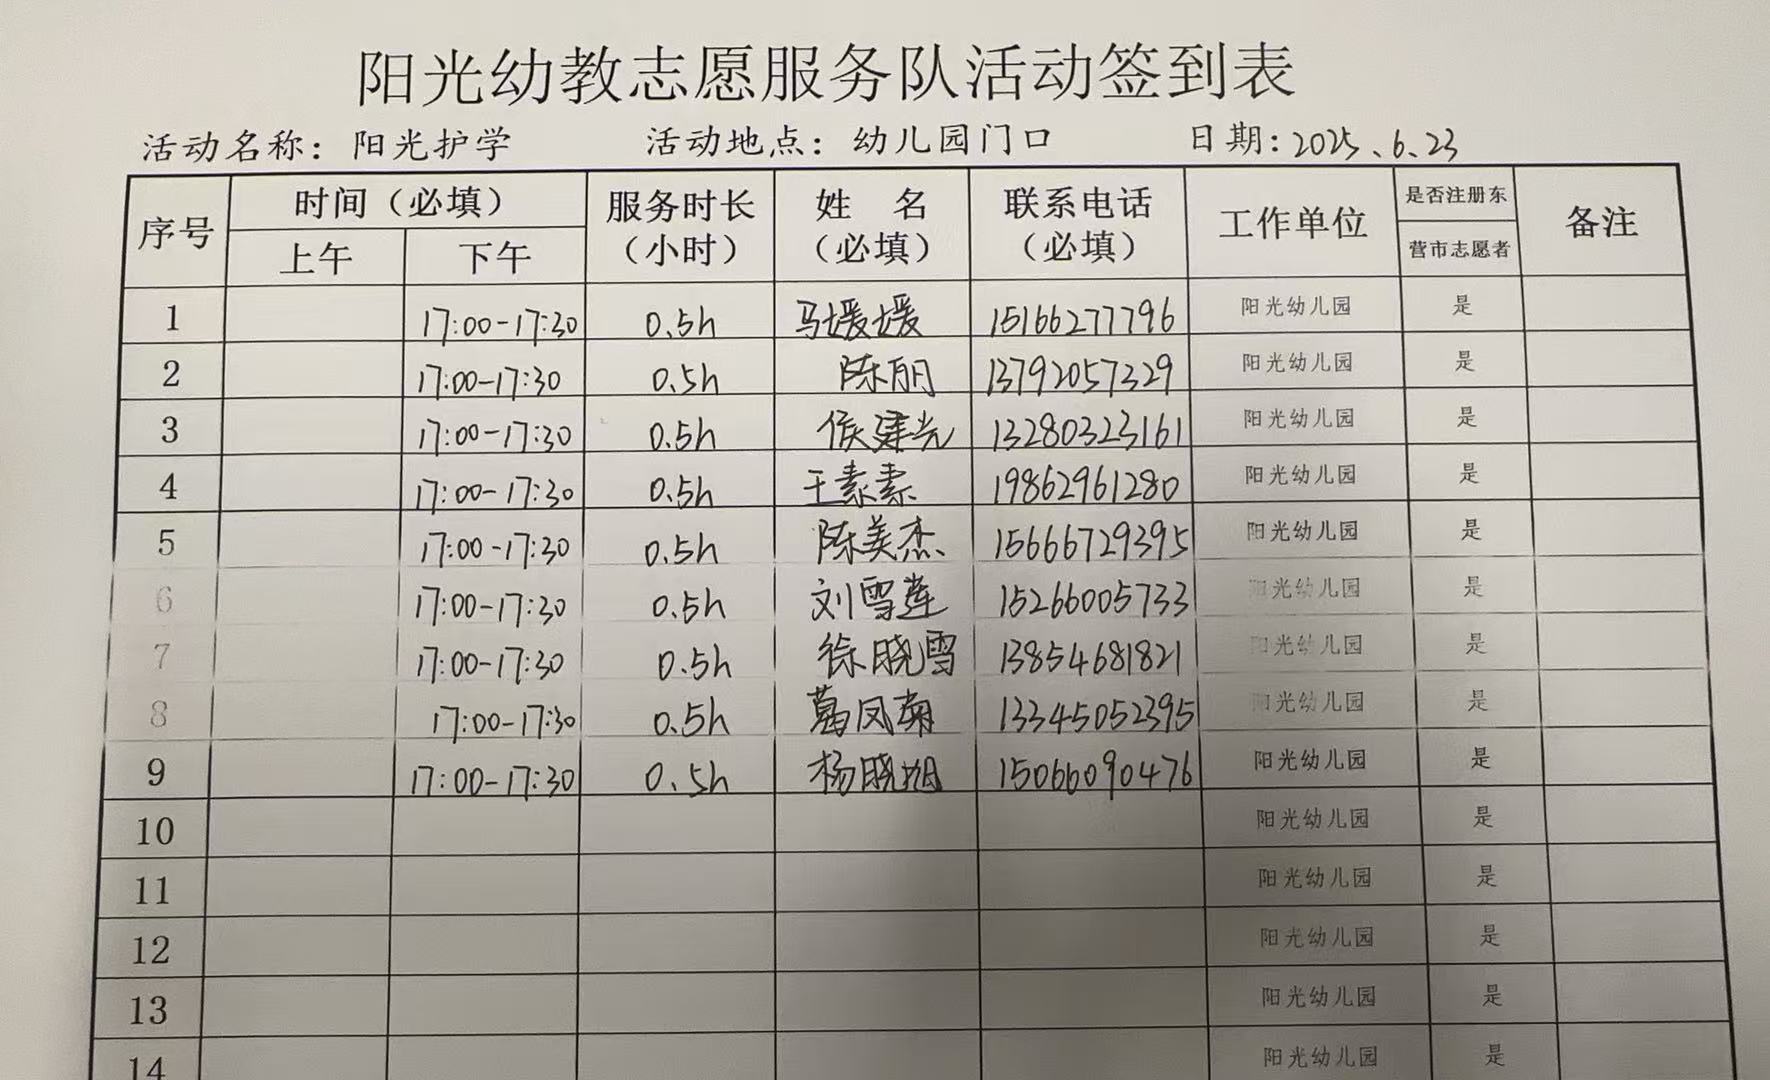 阳光幼教志愿服务队活动签到表
活动名称：阳光护学 活动地点：幼儿园门口 日期：2025.6.23
序号 时间（必填） 服务时长（小时） 姓 名（必填） 联系电话（必填） 工作单位 是否注册东营市志愿者 备注
上午 下午
1 17:00-17:30 0.5h 马媛媛 15166277796 阳光幼儿园 是
2 17:00-17:30 0.5h 陈丽 13792057329 阳光幼儿园 是
3 17:00-17:30 0.5h 侯建光 13280323161 阳光幼儿园 是
4 17:00-17:30 0.5h 王素素 19862961280 阳光幼儿园 是
5 17:00-17:30 0.5h 陈美杰 15666729395 阳光幼儿园 是
6 17:00-17:30 0.5h 刘雪莲 15266005733 阳光幼儿园 是
7 17:00-17:30 0.5h 徐晓雪 13854681821 阳光幼儿园 是
8 17:00-17:30 0.5h 葛凤菊 13345052395 阳光幼儿园 是
9 17:00-17:30 0.5h 杨晓旭 15066090476 阳光幼儿园 是
10 阳光幼儿园 是
11 阳光幼儿园 是
12 阳光幼儿园 是
13 阳光幼儿园 是
14 阳光幼儿园 是